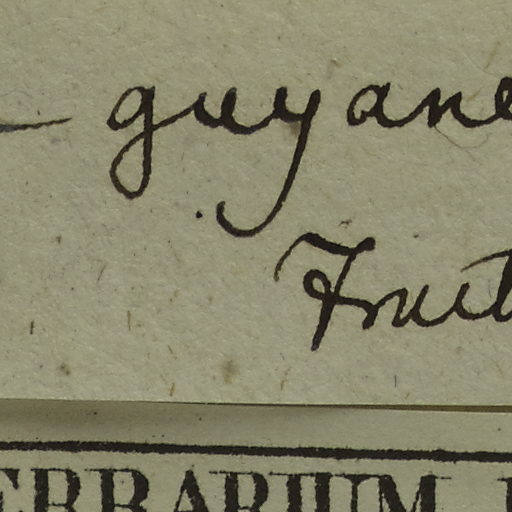 guyane
Fruct
ERBARIUM